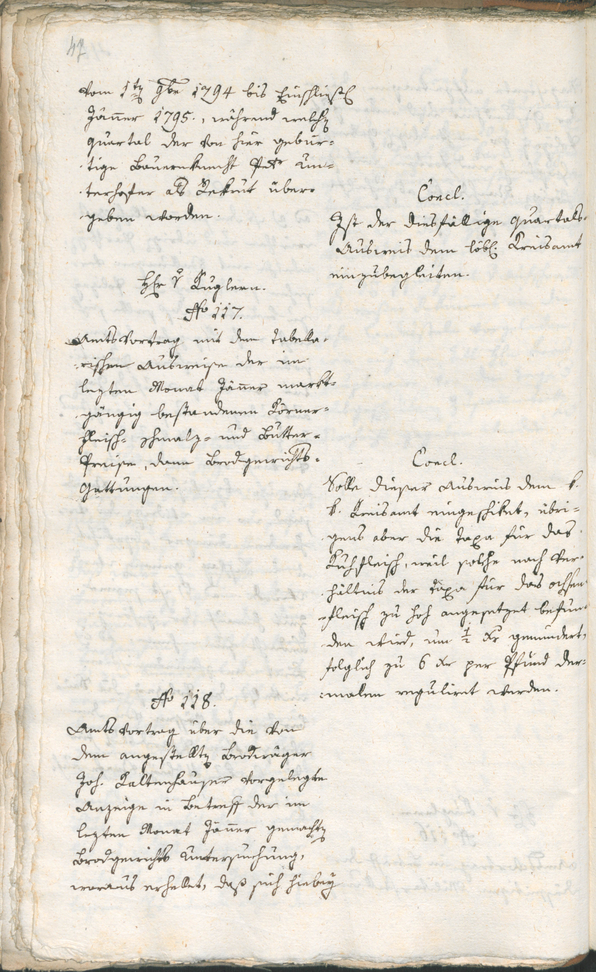 42
vom 1ten 9bre 1794 bis Einschlußl
Jänner 1795., während welchen
Quartal der von hier gebür-
tige Bauernknecht Petr Un-
terhofer als Rekrut über-
geben worden.
Concl.
Ist der diesfällige Quartals-
Ausweis dem löbl. Kreisamt
einzubegleiten.
Hr v Kuglern.
No 117.
Amtsvortrag mit dem Tabella-
rischen Ausweise der im
lezten Monat Jänner markt-
gängig bestandenen Körner-
Fleisch- Schmalz- und Butter-
Preise, dann Brodgewichts-
Gattungen.
Concl.
Solle dieser Ausweis dem k.
k. Kreisamt eingeschikt, übri-
gens aber die Taxa für das
Kuhfleisch, weil solche nach Ver-
hältnis der Taxa für das Ochsen-
fleisch zu hoch angesetzet befun-
den wird, um ½ Kr gemindert,
folglich zu 6 Kr per Pfund der-
malen regulirt werden.
No 118.
Amtsvortrag über die von
dem angestellten Brodwäger
Joh. Kaltenhauser vorgelegte
Anzeige in Betreff der im
lezten Monat Jänner gemachten
Brodgewichts Untersuchung,
woraus erhellet, daß sich hiebey